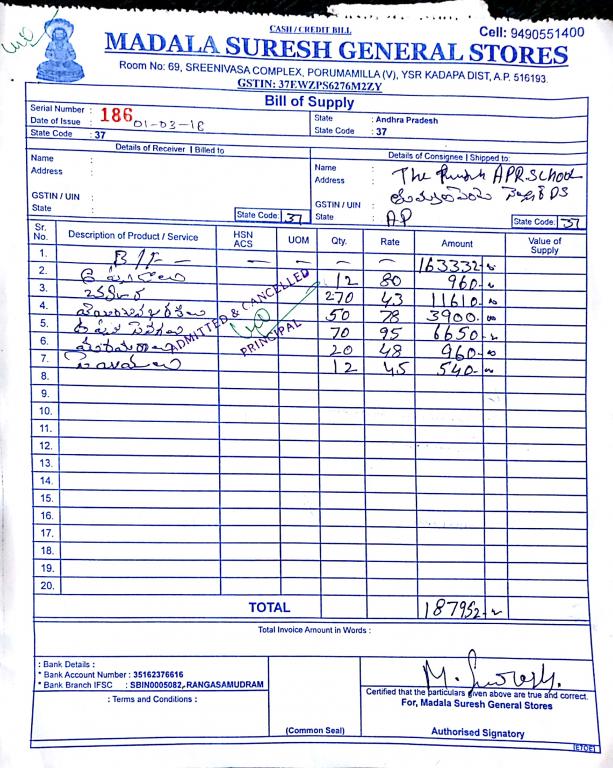 CASH / CREDIT BILL
Cell: 9490551400
MADALA SURESH GENERAL STORES
Room No: 69, SREENIVASA COMPLEX, PORUMAMILLA (V), YSR KADAPA DIST, A.P. 516193.
GSTIN: 37EWZPS6276M2ZY
Bill of Supply
Serial Number : 186
Date of Issue : 01-03-18
State Code : 37
State : Andhra Pradesh
State Code : 37
Details of Receiver | Billed to
Name :
Address :
GSTIN / UIN :
State :
State Code: 37
Details of Consignee | Shipped to:
Name : The APR School
Address :
GSTIN / UIN :
State : AP
State Code: 37
Sr. No. Description of Product / Service HSN ACS UOM Qty. Rate Amount Value of Supply
1. B/F — — — — — 163332
2. 12 80 960
3. 270 43 11610
4. 50 78 3900
5. 70 95 6650
6. 20 48 960
7. 12 45 540
8.
9.
10.
11.
12.
13.
14.
15.
16.
17.
18.
19.
20.
ADMITTED & CANCELLED
PRINCIPAL
TOTAL 187952
Total Invoice Amount in Words :
: Bank Details :
* Bank Account Number : 35162376616
* Bank Branch IFSC : SBIN0005082, RANGASAMUDRAM
: Terms and Conditions :
(Common Seal)
M. Suresh.
Certified that the particulars given above are true and correct.
For, Madala Suresh General Stores
Authorised Signatory
(E7OE)